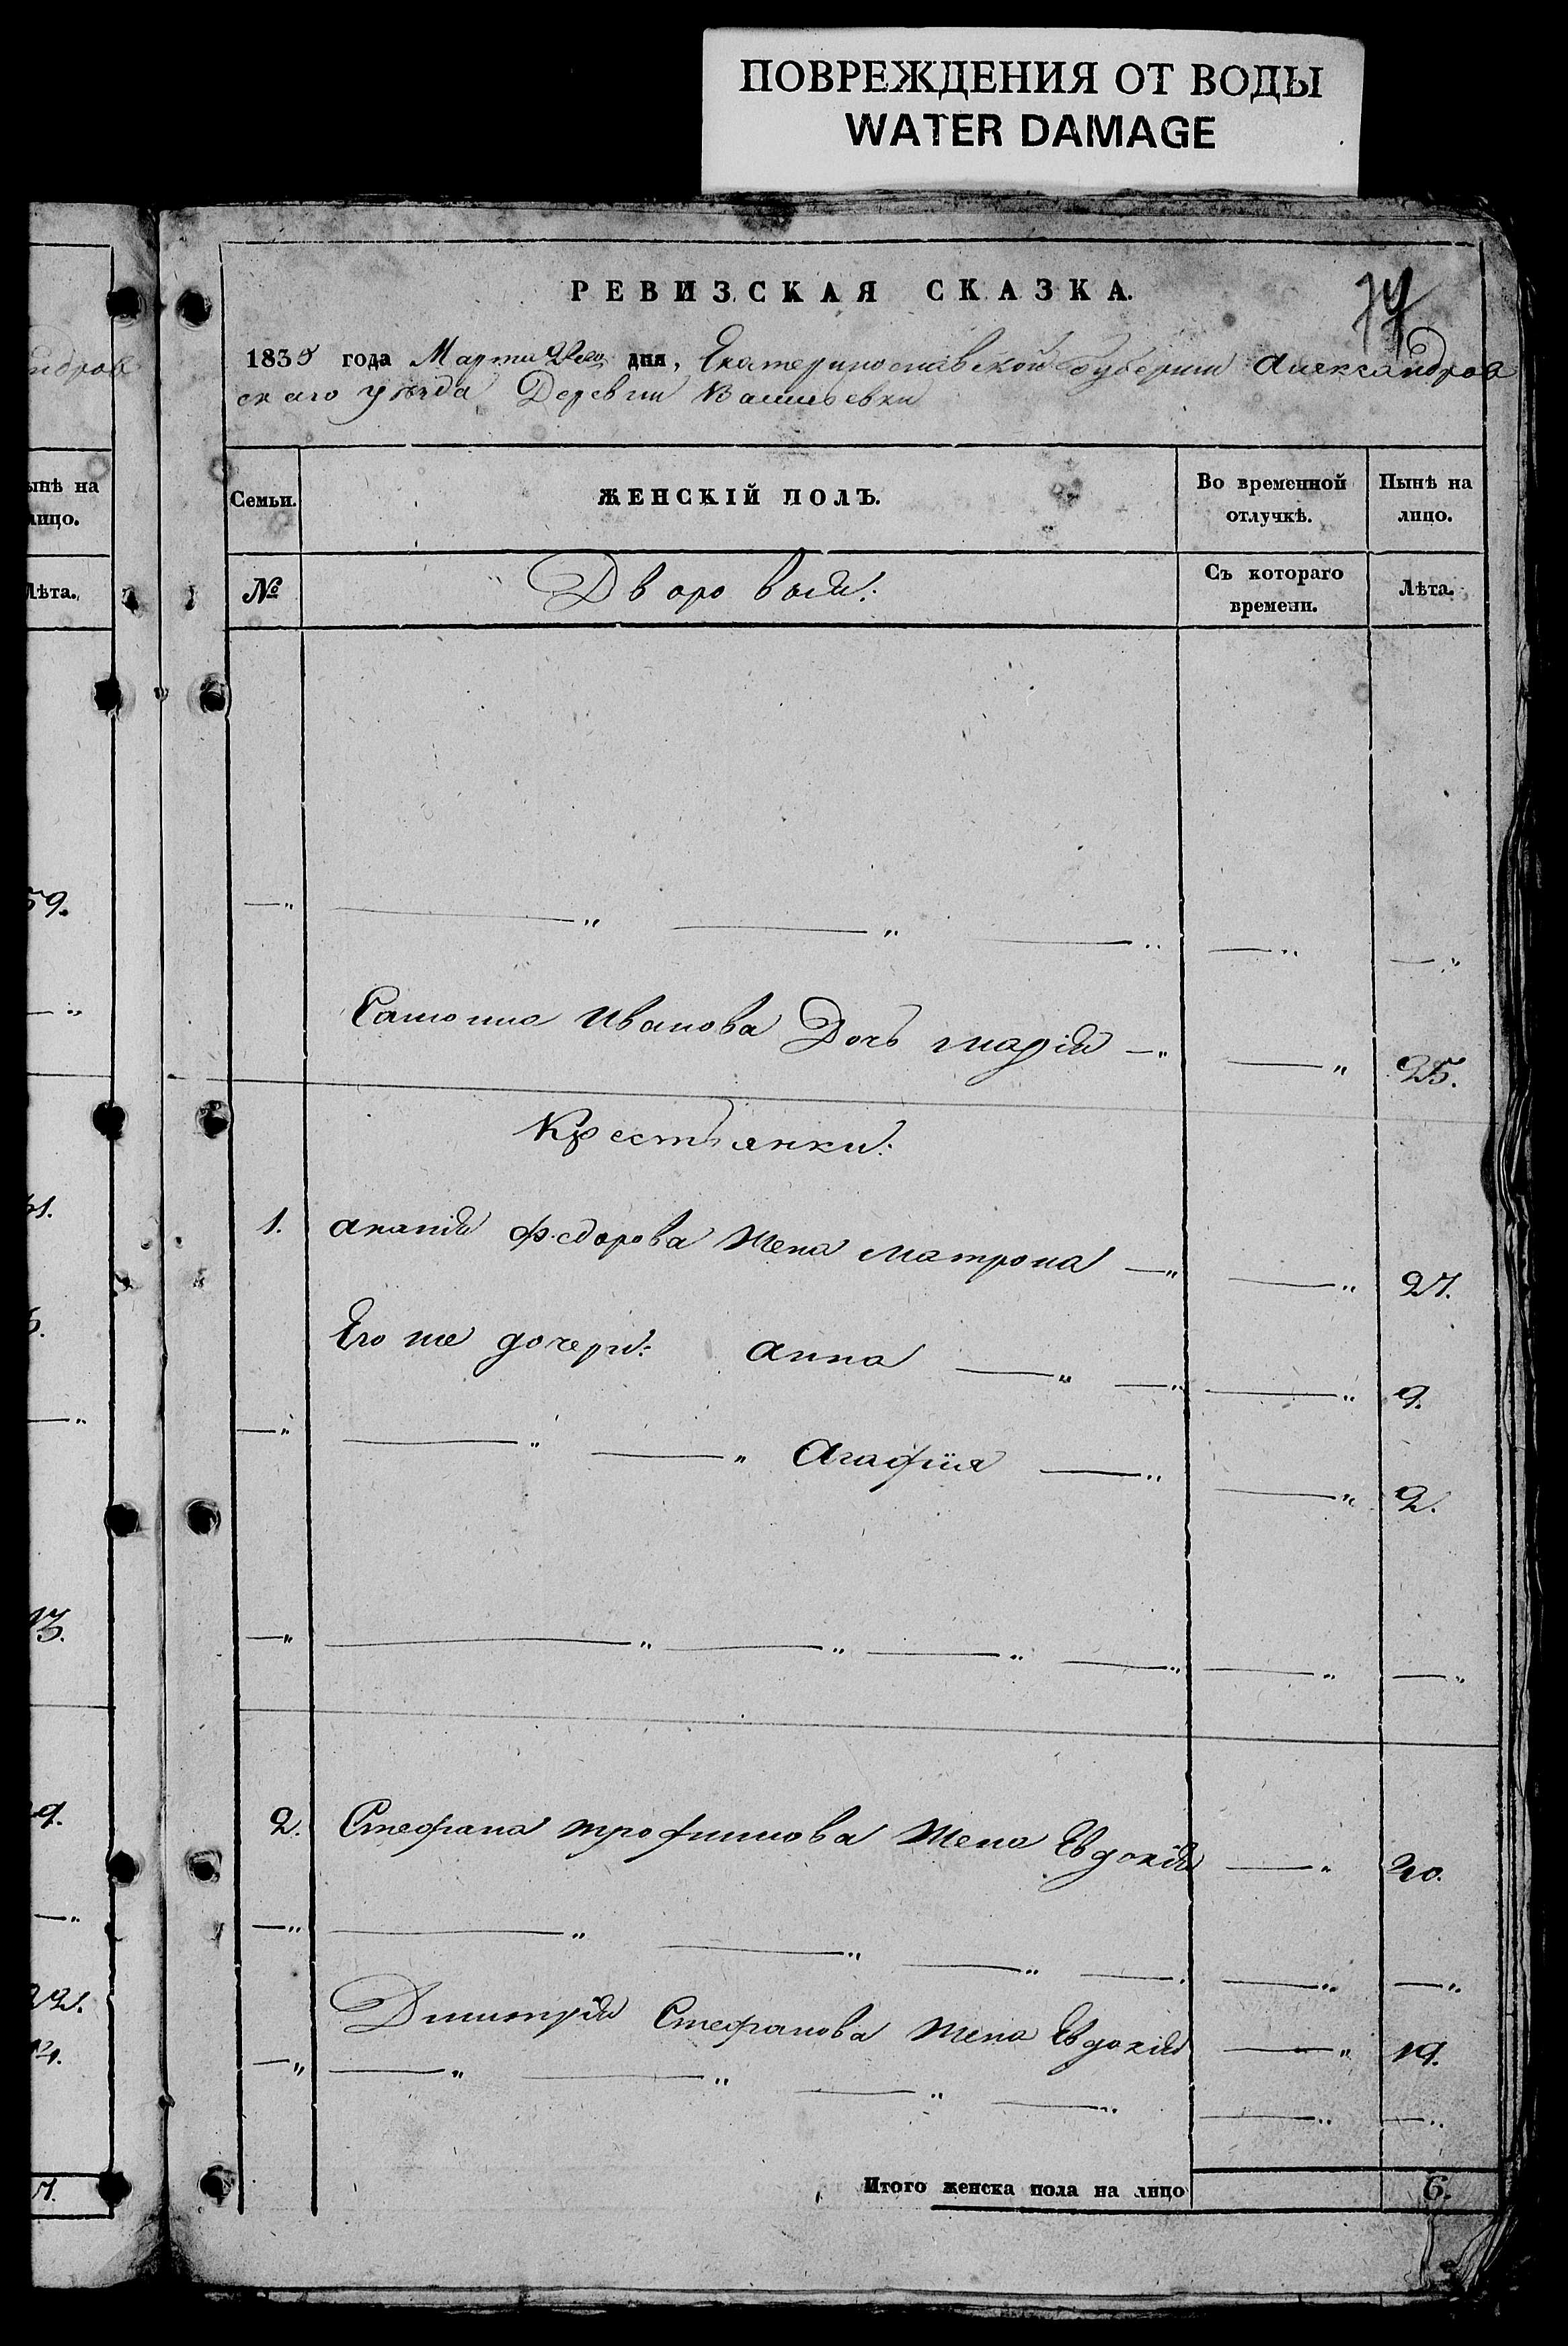 ПОВРЕЖДЕНИЯ ОТ ВОДЫ
WATER DAMAGE
РЕВИЗСКАЯ СКАЗКА.
74
1835 года Марта дня, Екатеринославской Губернии Александров
скаго уѣзда Деревни Васильевки
ндров
ынѣ на
лицо.
Лѣта.
Семьи.
ЖЕНСКІЙ ПОЛЪ.
Во временной
отлучкѣ.
Нынѣ на
лицо.
№
Дворовыя:
Съ котораго
времени.
Лѣта.
59.
— „ — „ — „ — „ — „ — „
Иванова Дочь Марія — „ — „ 25.
Крестьянки:
1. Ананія Федорова Жена Матрона — „ — „ 27.
Его же дочери: Анна — „ — „ — „ 9.
— „ — „ — „ Агафія — „ — „ 2.
— „ — „ — „ — „ — „ — „ — „
2. Стефана Трофимова Жена Евдокія — „ 20.
— „ — „ — „ — „ — „ — „ — „
Дмитрія Стефанова Жена Евдокія — „ 19.
— „ — „ — „ — „ — „ — „ — „
22.
Итого женска пола на лицо 6.